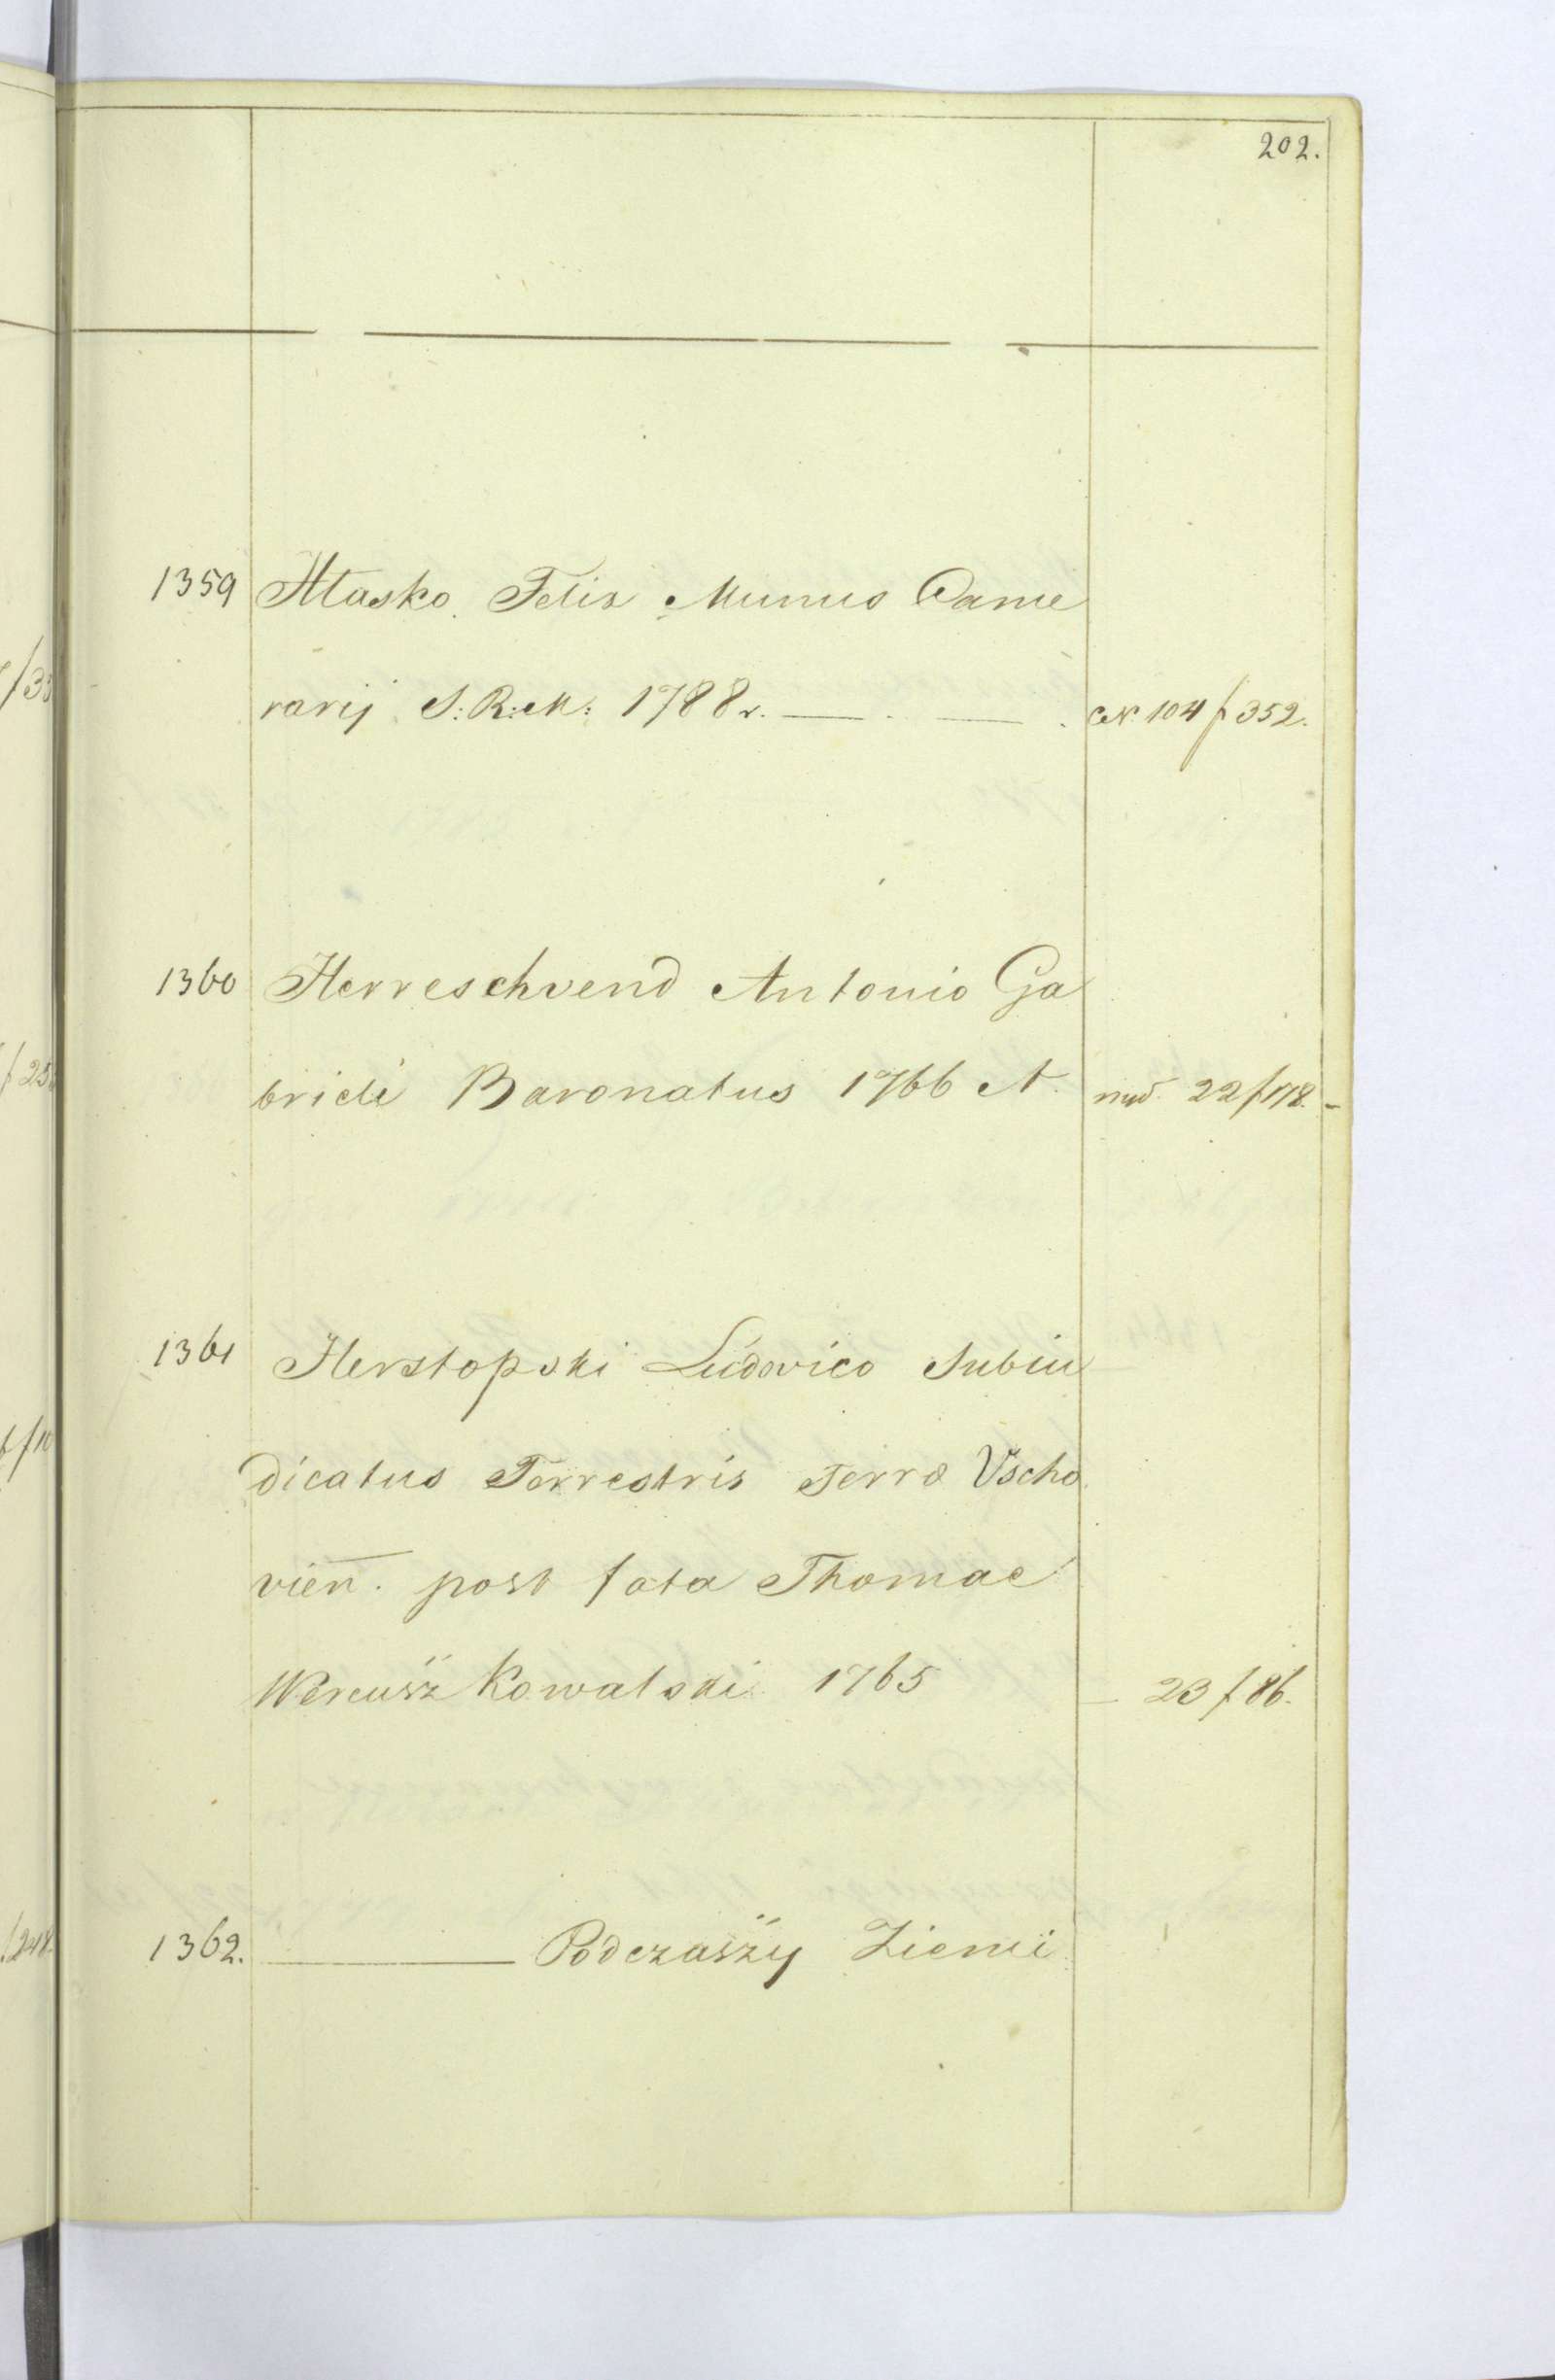 202.
1359 Hłasko Felix Munus Came
rarij S: R: M: 1788 r. — — . 104 f 352.
1360 Herreschvend Antonio Ga
brieli Baronatus 1766 A. 22 f 178. -
1361 Herstopski Ludovico Subiu
dicatus Terrestris Terræ Vscho
vien̄. post fata Thomae
Wereusz Kowalski 1765 — 23 f 86.
1362. ——— Podczaszy Ziemi